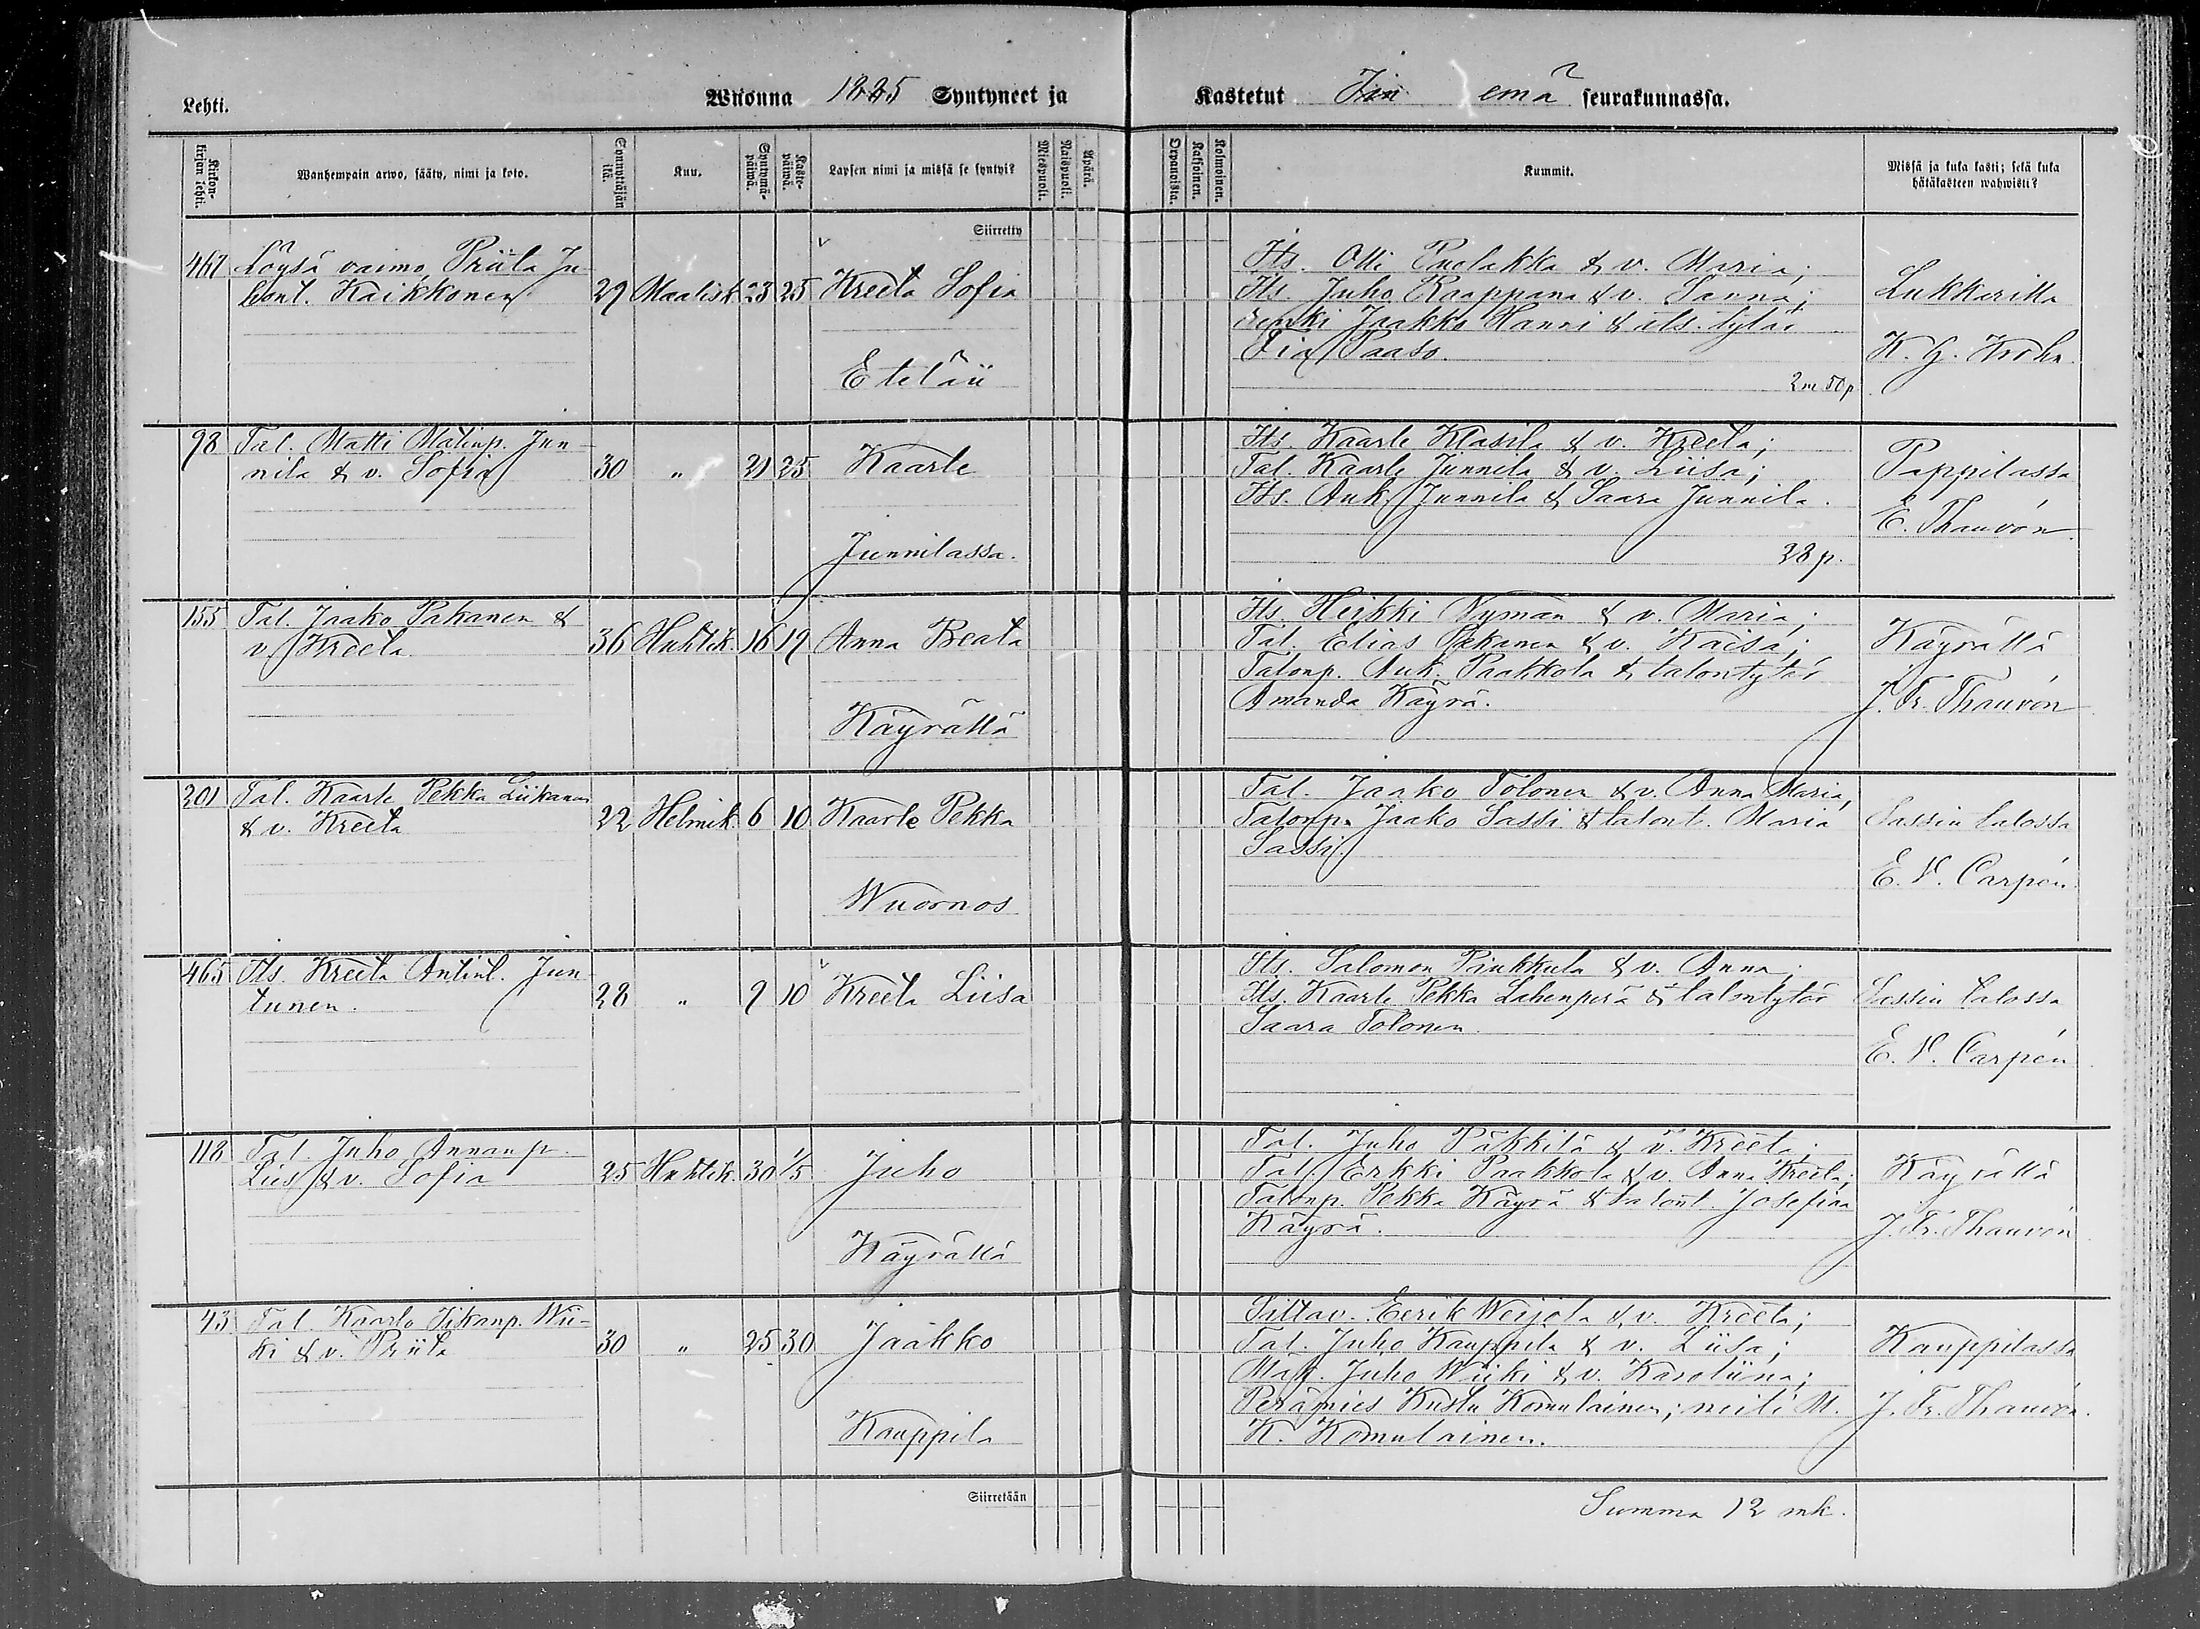 Lehti.
Wuonna 1885 Syntyneet ja
Kastetut Iin emä seurakunnassa.
Kirkon-kirjan lehti.
Wanhempain arwo, sääty, nimi ja koto.
Synnyttäjän ikä.
Kuu.
Syntymä-päivä.
Kaste-päivä.
Lapsen nimi ja missä se syntyi?
Miespuoli.
Naispuoli.
Äpärä.
Orpanoista.
Kaksoinen.
Kolmoinen.
Kummit.
Missä ja kuka kasti; sekä kuka hätäkasteen wahwisti?
Siirretty
467 Löysä vaimo, Priita Ju-
hont. Kaikkonen 29 Maalisk. 23 25 Kreeta Sofia
Etelä Ii
Its. Olli Puolakka & v. Maria;
Its. Juho Kaappana & v. Sanna;
renki Jaakko Hanni & its. tytär
Fia Paaso.
2 m 50 p
Lukkarilla
K. G. Krohn.
98 Tal. Matti Matinp. Jun-
nila & v. Sofia 30 " 21 25 Kaarle
Junnilassa.
Its. Kaarle Klasila & v. Kreeta;
Tal. Kaarle Junnila & v. Liisa;
Its. Auk. Junnila & Saara Junnila.
28 p.
Pappilassa
E. Thauvón
155 Tal. Jaako Pakanen &
v. Kreeta 36 Huhtik. 16 19 Anna Beata
Käyrällä
Its. Heikki Nyman & v. Maria;
Tal. Elias Pakanen & v. Kaisa;
Talonp. Auk. Paakkola & talontytär
Amanda Käyrä.
Käyrällä
J. Fr. Thauvón
201 Tal. Kaarle Pekka Liikanen
& v. Kreeta 22 Helmik. 6 10 Kaarle Pekka
Wuornos
Tal. Jaako Tolonen & v. Anna Maria,
Talonp. Jaako Sassi & talont. Maria
Sassi.
Sassin talossa
E. V. Carpén.
465 Its. Kreeta Antint. Jun-
tunen. 28 " 9 10 Kreeta Liisa
Its. Salomon Pinkkula & v. Anna;
Its. Kaarle Pekka Lahenperä & talontytär
Saara Tolonen.
Sassin talossa
E. V. Carpén
118 Tal. Juho Annanp.
Lies & v. Sofia 25 Huhtik. 30 1/5 Juho
Käyrällä
Tal. Juho Päkkilä & v. Kreeta;
Tal. Erkki Paakkola & v. Anna Kreeta;
Talonp. Pekka Käyrä & talont. Josefina
Käyrä.
Käyrällä
J. Fr. Thauvón
43 Tal. Kaarlo Iikanp. Wii-
ki & v. Priita 30 " 25 30 Jaakko
Kauppila
Siltav. Eerik Weijola & v. Kreeta;
Tal. Juho Kauppila & v. Liisa;
Mak. Juho Wiiki & v. Karoliina;
Perämies Kustu Komulainen; neiti M.
K. Komulainen.
Kauppilassa
J. Fr. Thauvón.
Siirretään
Summa 12 mk.